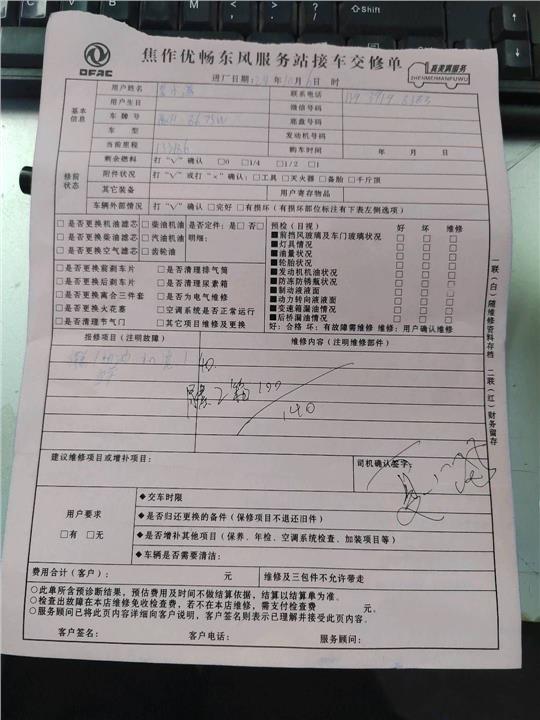 Shift
焦作优畅东风服务站接车交修单
DFAC
真美满服务
ZHENMEIMANFUWU
进厂日期: 年 10月 日 时
基本信息
用户姓名
联系电话
用户生日
微信号码
车牌号
底盘号码
车型
发动机号码
当前里程 133136
购车时间 年 月 日
修前状态
剩余燃料 打“√”确认 □0 □1/4 □1/2 □1
附件状况 打“√”或打“×”确认: □工具 □灭火器 □备胎 □千斤顶
其它装备 用户寄存物品
车辆外部情况 打“√”确认 □完好 □有损坏(有损坏部位标注有下表左侧选项)
□是否更换机油滤芯 □柴油机油 是否定件: 是□ 否□
□是否更换柴油滤芯 □汽油机油 明细:
□是否更换空气滤芯 □齿轮油
□是否更换前刹车片 □是否清理排气筒
□是否更换后刹车片 □是否清理尿素箱
□是否更换离合三件套 □是否为电气维修
□是否更换火花塞 □空调系统是否正常运行
□是否清理节气门 □其它项目维修及更换
预检(目视) 好 坏 维修
■前挡风玻璃及车门玻璃状况 □ □ □
■灯具情况 □ □ □
■油量状况 □ □ □
■轮胎状况 □ □ □
■发动机机油状况 □ □ □
■防冻防锈瓶状况 □ □ □
■制动液液面 □ □ □
■动力转向液液面 □ □ □
■变速箱漏油情况 □ □ □
■后桥漏油情况 □ □ □
好: 合格 坏: 有故障需维修 维修: 用户确认维修
报修项目(注明故障)
维修内容(注明维修部件)
40.
100
140
建议维修项目或增补项目:
司机确认签字:
用户要求
□有 □无
◆交车时限
◆是否归还更换的备件(保修项目不退还旧件)
◆是否增补其他项目(保养、年检、空调系统检查、加装项目等)
◆车辆是否需要清洁:
费用合计(客户): 元
维修及三包件不允许带走
○此单所含预诊断结果,预估费用及时间不做结算依据,结算以结算单为准。
○检查出故障在本店维修免收检查费,若不在本店维修,需支付检查费 元。
○服务顾问已将此页内容详细向客户说明,客户签名则表示已理解并接受此页内容。
客户签名: 客户电话: 服务顾问:
一联(白)随维修资料存档 二联(红)财务留存